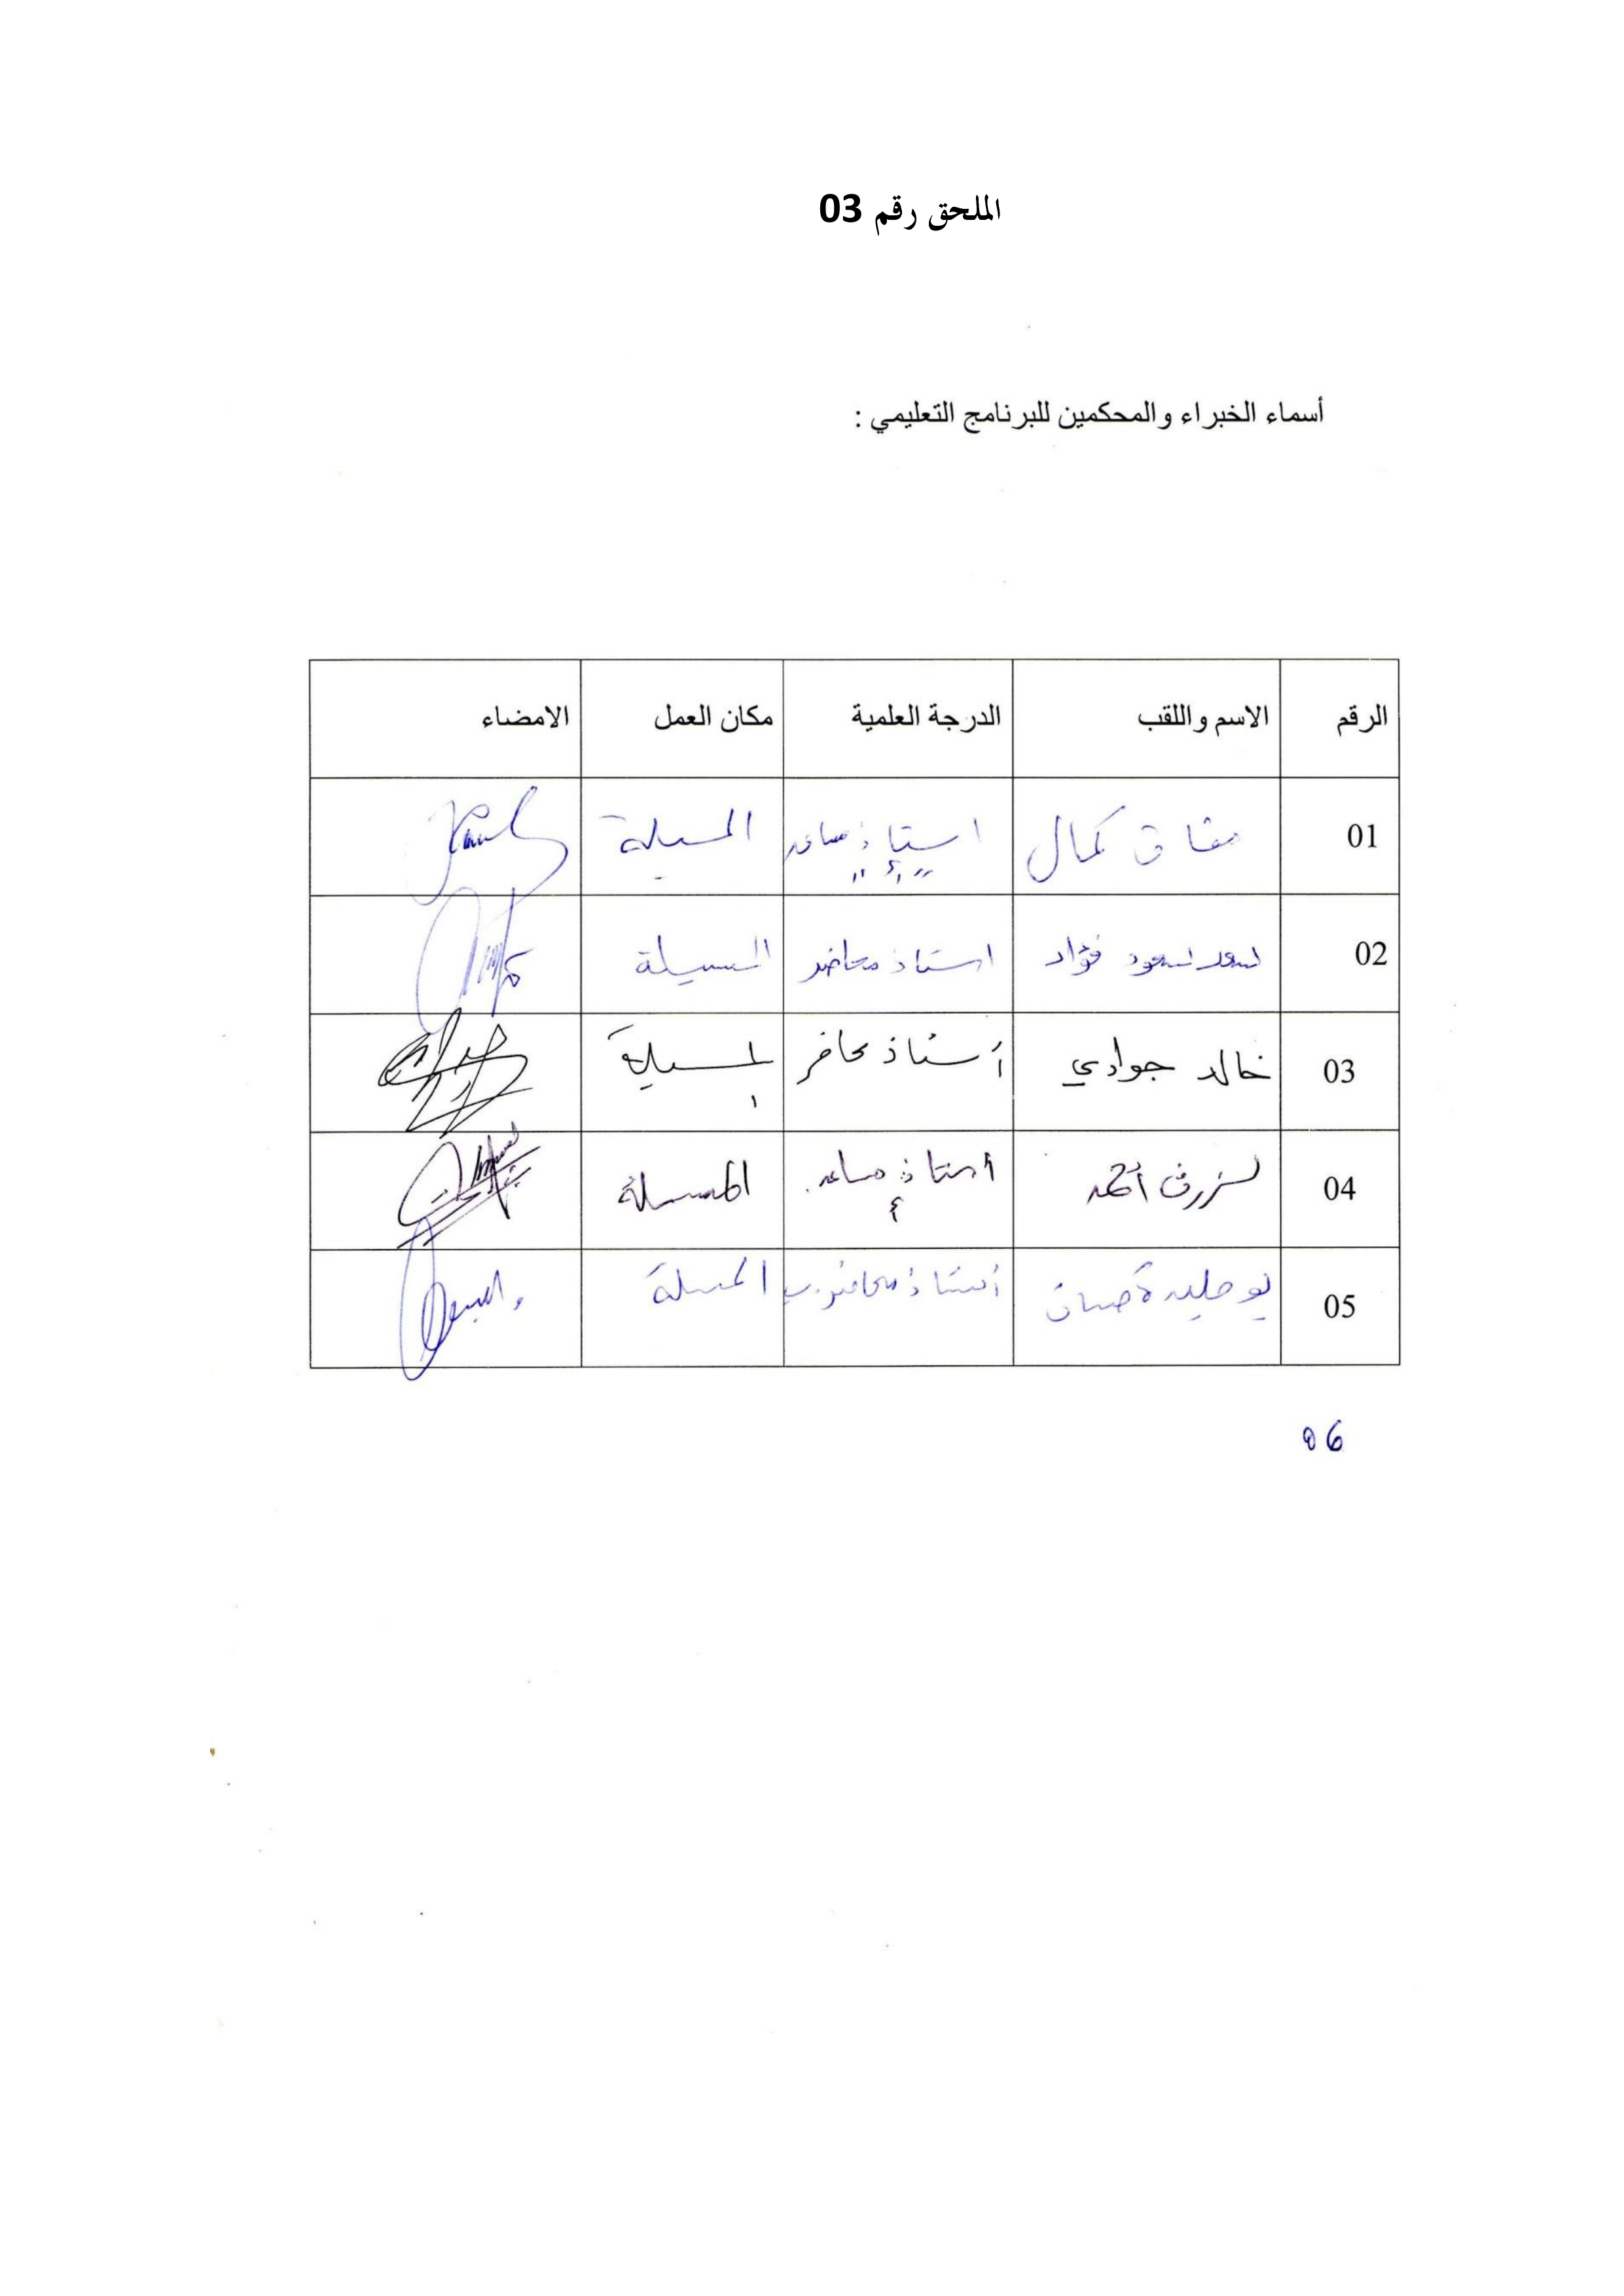 الملحق رقم 03
أسماء الخبراء والمحكمين للبرنامج التعليمي :
الرقم الاسم واللقب الدرجة العلمية مكان العمل الامضاء
01 مقاق كمال استاذ مساعد "أ" المسيلة
02 سعد سعود فؤاد استاذ محاضر المسيلة
03 خالد جوادي أستاذ محاضر المسيلة
04 لزرق أحمد أستاذ مساعد أ المسيلة
05 بوجليدة حسان أستاذ محاضر ب المسيلة
06